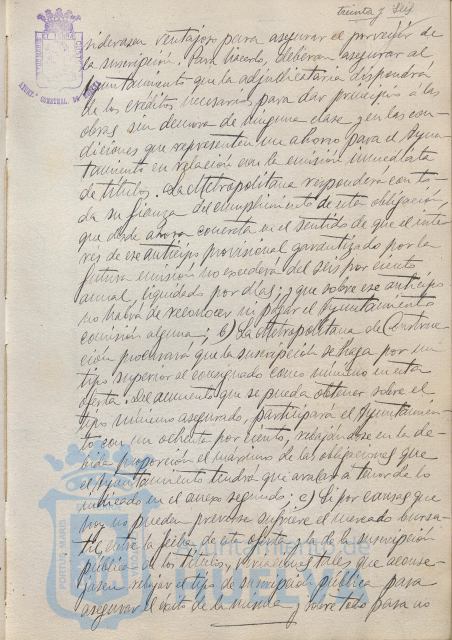 treinta y Seis
siderasen ventajoso para asegurar el porvenir de
la suscripción. Para hacerlo, deberán asegurar al
Ayuntamiento que la adjudicataria dispondrá
de los créditos necesarios para dar principio a las
obras sin demora de ninguna clase y en las con-
diciones que representen un ahorro para el Ayun-
tamiento en relación con la emisión inmediata
de títulos. La Metropolitana responderá con to-
da su fianza del cumplimiento de esta obligación,
que desde ahora concreta en el sentido de que el inte-
rés de ese anticipo provisional garantizado por la
futura emisión no excederá del seis por ciento
anual, liquidado por días; y que sobre ese anticipo
no habrá de reconocer ni pagar el Ayuntamiento
comisión alguna; b) La Metropolitana de Construc-
ción procurará que la suscripción se haga por un
tipo superior al consignado como mínimo en esta
oferta. Del aumento que se pueda obtener sobre el
tipo mínimo asegurado, participará el Ayuntamien-
to con un ochenta por ciento, rebajándose en la de-
bida proporción el máximo de las obligaciones que
el Ayuntamiento tendrá que avalar a tenor de lo
indicado en el anexo segundo; c) Si por causas que
hoy no pueden preverse sufriere el mercado bursa-
til, entre la fecha de esta oferta y la de la suscripción
pública de los títulos, variaciones tales que aconse-
jasen rebajar el tipo de suscripción pública para
asegurar el éxito de la misma y sobre todo para no
Ayuntamiento de
HUELVA
PORTUS MARIS